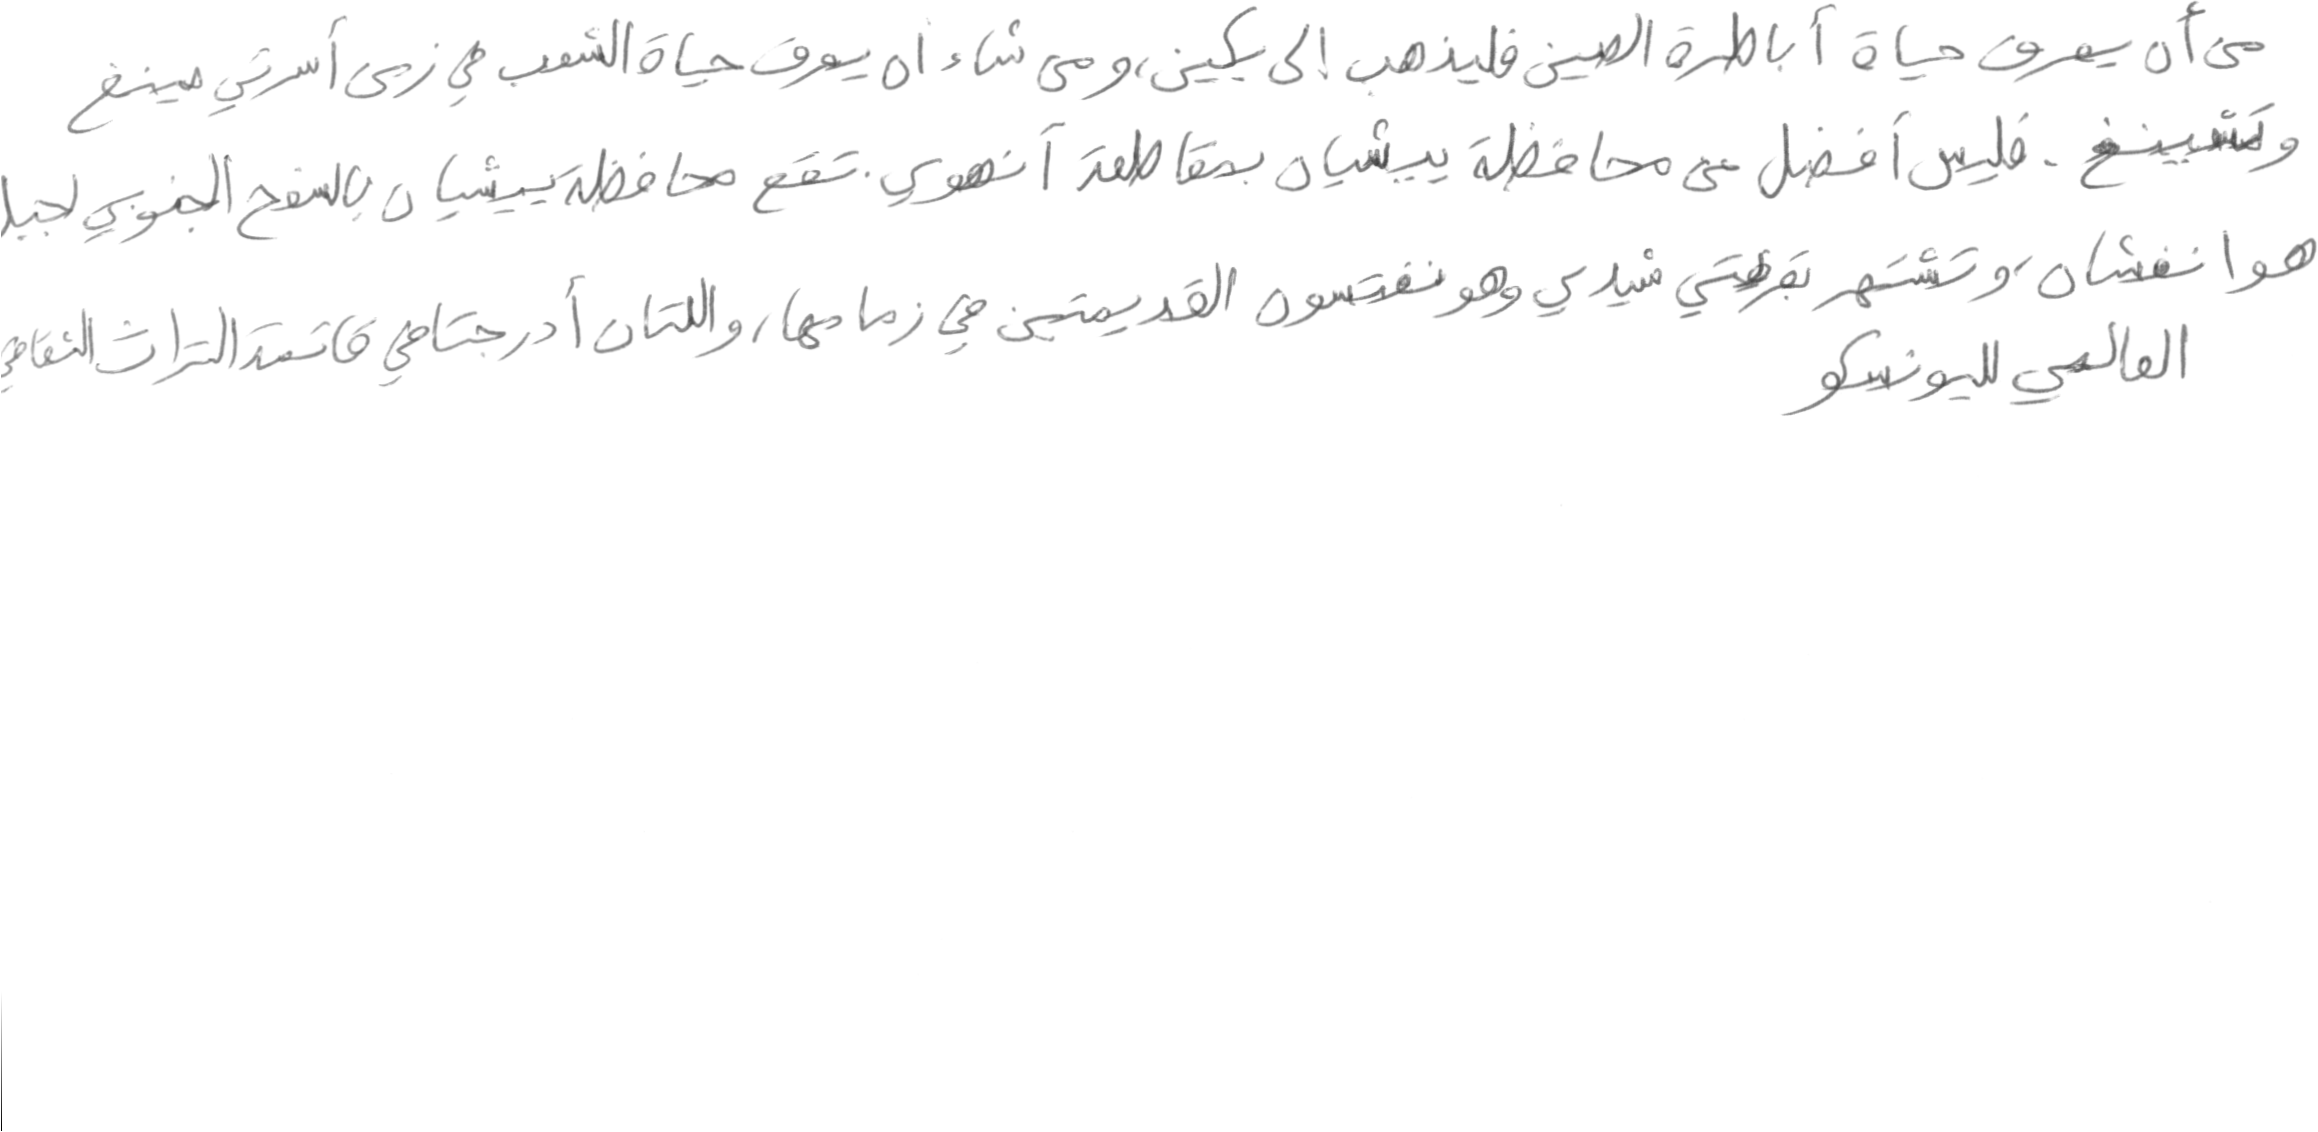 من أن يعرف حياة أباطرة الصين فليذهب إلى بكين، ومن شاء ان يعرف حياة الشعب في زمن أسرتي مينغ
وتشينغ. فليس أفضل من محافظة ييشيان بمقاطعة آنهوي. تقع محافظة ييشيان بالسفح الجنوبي لجبل
هوانغشان، وتشتهر بقريتي شيدي وهونغتسون القديمتين في زمامها، واللتان أدرجتا في قائمة التراث الثقافي
العالمي لليونسكو